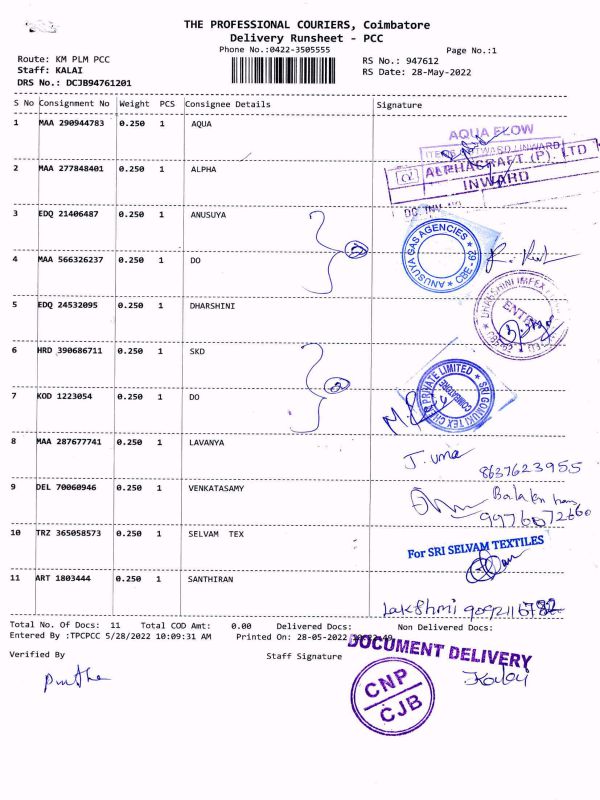 THE PROFESSIONAL COURIERS, Coimbatore
Delivery Runsheet - PCC
Phone No.:0422-3505555
Page No.:1
Route: KM PLM PCC
RS No.: 947612
Staff: KALAI
RS Date: 28-May-2022
DRS No.: DCJB94761201
S No Consignment No Weight PCS Consignee Details Signature
1 MAA 290944783 0.250 1 AQUA
AQUA FLOW
2 MAA 277848401 0.250 1 ALPHA
ALPHACRAFT (P). LTD
INWARD
3 EDQ 21406487 0.250 1 ANUSUYA
ANUSUYA GAS AGENCIES
4 MAA 566326237 0.250 1 DO
5 EDQ 24532095 0.250 1 DHARSHINI
6 HRD 390686711 0.250 1 SKD
PRIVATE LIMITED
COIMBATORE
7 KOD 1223054 0.250 1 DO
8 MAA 287677741 0.250 1 LAVANYA
J. uma
8637623955
9 DEL 70060946 0.250 1 VENKATASAMY
10 TRZ 365058573 0.250 1 SELVAM TEX
For SRI SELVAM TEXTILES
11 ART 1803444 0.250 1 SANTHIRAN
Lakshmi
Total No. Of Docs: 11 Total COD Amt: 0.00 Delivered Docs: Non Delivered Docs:
Entered By :TPCPCC 5/28/2022 10:09:31 AM Printed On: 28-05-2022
DOCUMENT DELIVERY
Verified By
Staff Signature
Kalai
CNP
CJB